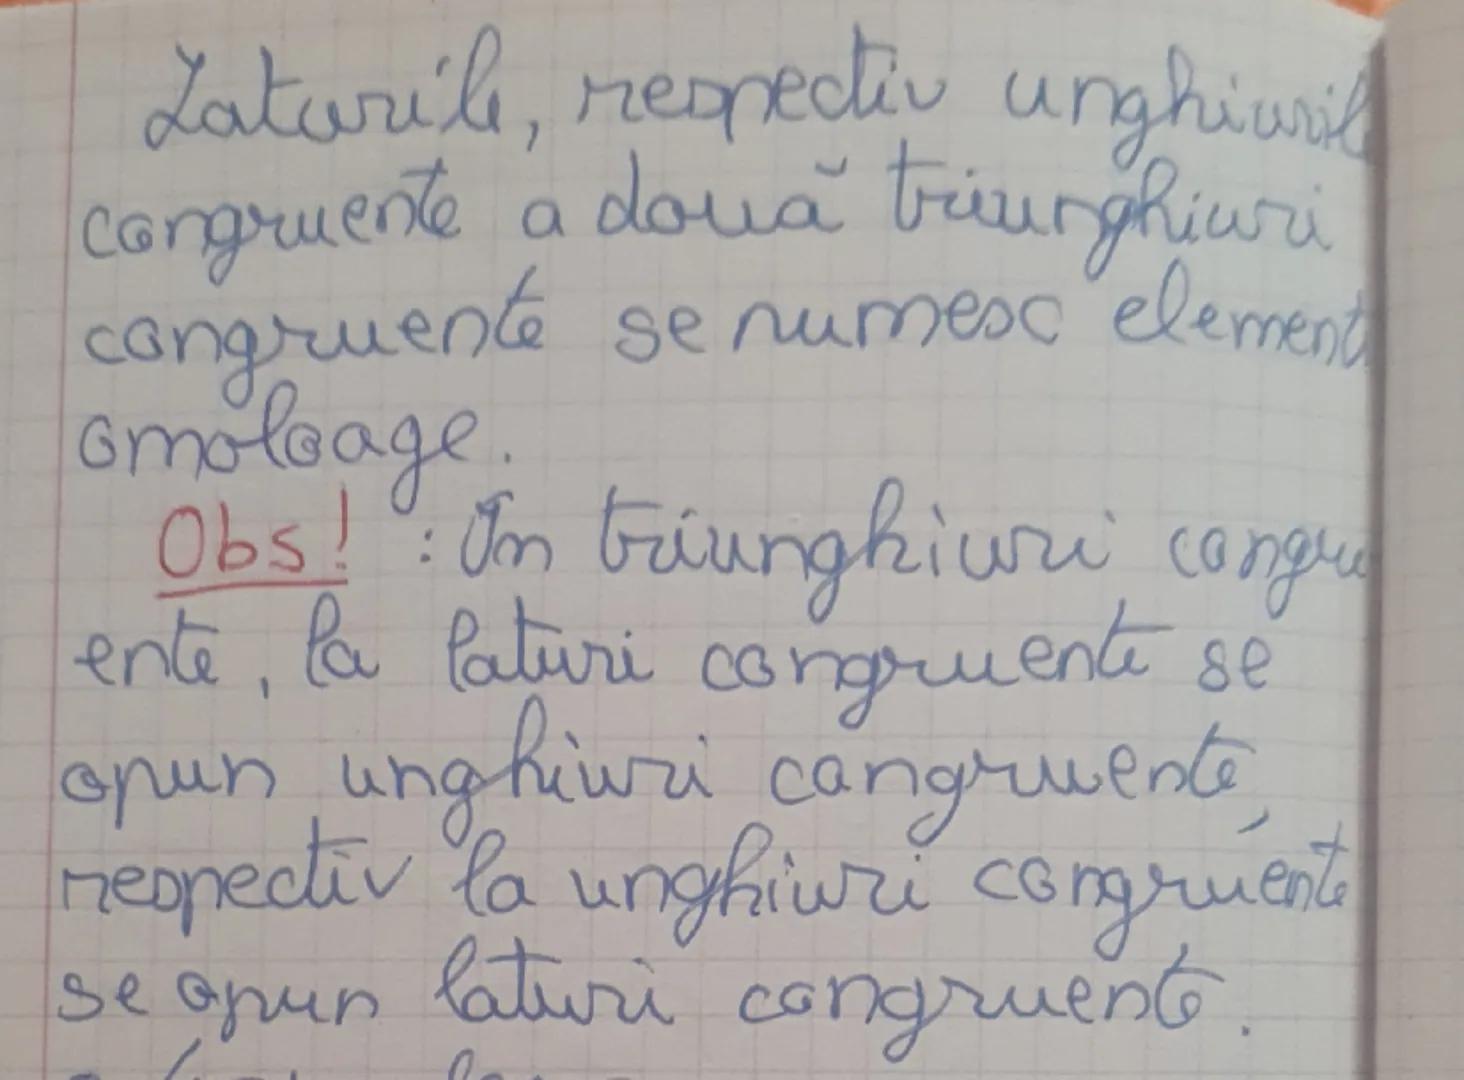 Laturile, respectiv unghiuril
congruente a două triunghiuri
congruente se numesc element
omoloage.
Obs! : În triunghiuri congru
ente, la laturi congruente se
opun unghiuri congruente,
respectiv la unghiuri congruente
se opun laturi congruente.